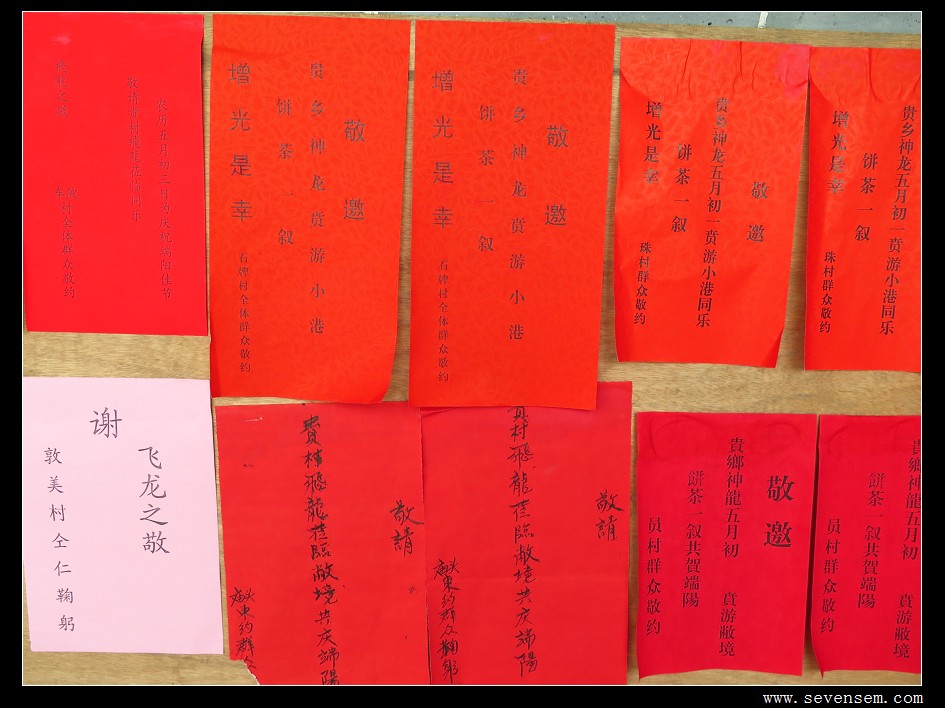 农历五月初三日为庆祝端阳佳节
敬请贵村飞龙莅临同乐
全体群众敬约
敬邀
贵乡神龙贲游小港
饼茶一叙
增光是幸
石牌村全体群众敬约
敬邀
贵乡神龙贲游小港
饼茶一叙
增光是幸
石牌村全体群众敬约
敬邀
贵乡神龙五月初一贲游小港同乐
饼茶一叙
增光是幸
珠村群众敬约
贵乡神龙五月初一贲游小港同乐
饼茶一叙
增光是幸
珠村群众敬约
谢
飞龙之敬
敦美村仝仁鞠躬
敬請
貴村飛龍莅臨敝境共庆端陽
東約群众
敬請
貴村飛龍莅臨敝境共庆端陽
東約群众鞠躬
敬邀
貴鄉神龍五月初 賁游敝境
餅茶一叙共賀端陽
员村群众敬约
貴鄉神龍五月初 賁游敝境
餅茶一叙共賀端陽
员村群众敬约
www.sevensem.com